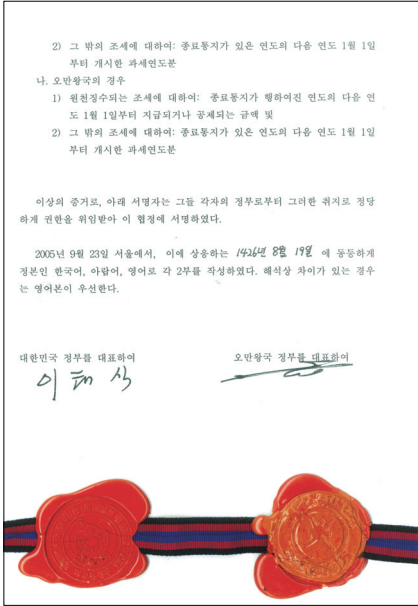 2) 그 밖의 조세에 대하여: 종료통지가 있은 연도의 다음 연도 1월 1일
부터 개시한 과세연도분
나. 오만왕국의 경우
1) 원천징수되는 조세에 대하여: 종료통지가 행하여진 연도의 다음 연
도 1월 1일부터 지급되거나 공제되는 금액 및
2) 그 밖의 조세에 대하여: 종료통지가 있은 연도의 다음 연도 1월 1일
부터 개시한 과세연도분
이상의 증거로, 아래 서명자는 그들 각자의 정부로부터 그러한 취지로 정당
하게 권한을 위임받아 이 협정에 서명하였다.
2005년 9월 23일 서울에서, 이에 상응하는 1426년 8월 19일 에 동등하게
정본인 한국어, 아랍어, 영어로 각 2부를 작성하였다. 해석상 차이가 있는 경우
는 영어본이 우선한다.
대한민국 정부를 대표하여
오만왕국 정부를 대표하여
이 태 식